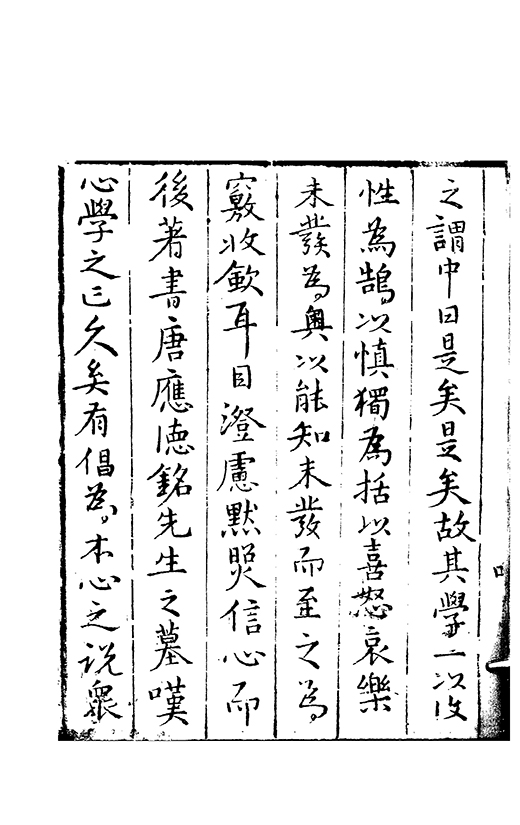 之謂中曰是矣是矣故其學一以收
性為鵠以慎獨為括以喜怒哀樂
未發為奧以能知未發而至之為
竅收歛耳目澄慮默炤信心而
後著書唐應德銘先生之墓嘆
心學之亡久矣有倡為本心之說衆